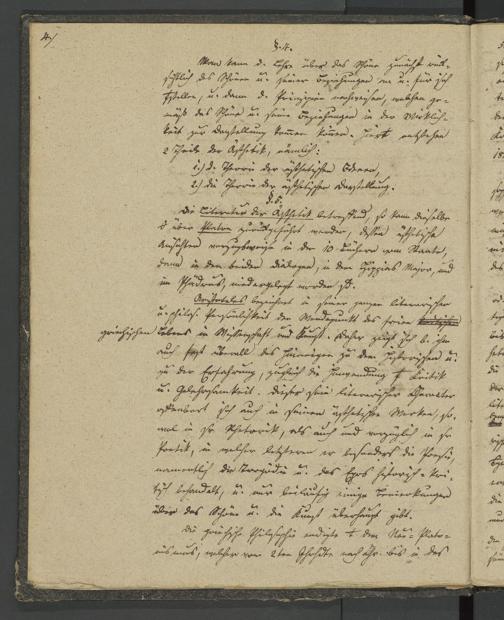 4/
§.4.
Man kann d. Lehre über das Schöne zunächst rück-
sichtlich des Schönen u. seiner Beziehungen an u. für sich
u. dann d. Prinzipien nachweisen, welchen ge-
mäß das Schöne u. seine Beziehungen in der Wirklich-
keit zur Darstellung kommen können. Hier entstehen
2 Theile der Ästhetik, nämlich:
1.) d. Theorie der ästhetischen Ideen,
2.) die Theorie der ästhetischen Darstellung.
§.5.
Die Literatur der Ästhetik betreffend, so kann dieselbe
über Platon zurückgeführt werden, dessen ästhetische
Ansichten vorzugsweise in der 10 Büchern vom Staate,
dann in den beiden Dialogen, in dem Hippias Major, und
im Phädrus, niedergelegt worden sind.
Aristoteles bezeichnet in seiner ganzen literarischen
u. philos. Persönlichkeit den Wendepunkt des freien
griechischen Lebens in Wissenschaft und Kunst. Daher zeigt sich b. ihm
auch überall das Hinneigen zu dem Historischen u.
zu der Erfahrung, zugleich die Hinwendung Kritik
u. Gelehrsamkeit. Dieser sein literarischer Charakter
offenbart sich auch in seinen ästhetischen Werken, so-
wol in der Rhetorik, als auch und vorzüglich in der
Poetik, in welcher letzteren er besonders die Poesie,
namentlich die Tragödie u. das Epos historisch-kri-
tisch behandelt, u. nur beiläufig einige Bemerkungen
über das Schöne u. die Kunst überhaupt gibt.
Die griechische Philosophie endigte dem Neu-Plato-
nismus, welcher vom 2ten Jahrhdte nach Chr. bis in das